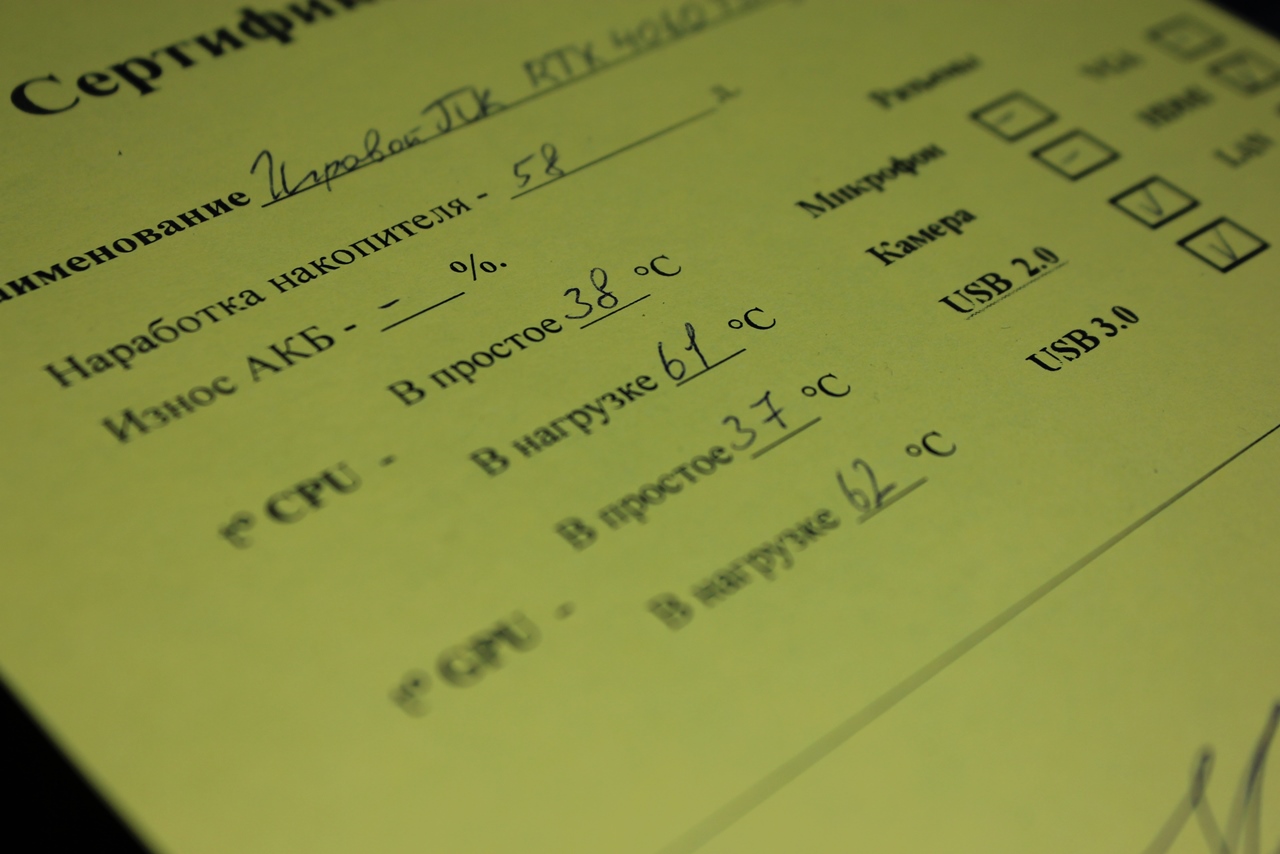 Сертифик
аименование Игровой ПК RTX 4060
Наработка накопителя - 58
Износ АКБ - - %.
t° CPU - В простое 38 °C
В нагрузке 61 °C
t° GPU - В простое 37 °C
В нагрузке 62 °C
Разъемы
Микрофон -
Камера -
USB 2.0 √
USB 3.0 √
VGA
HDMI
LAN